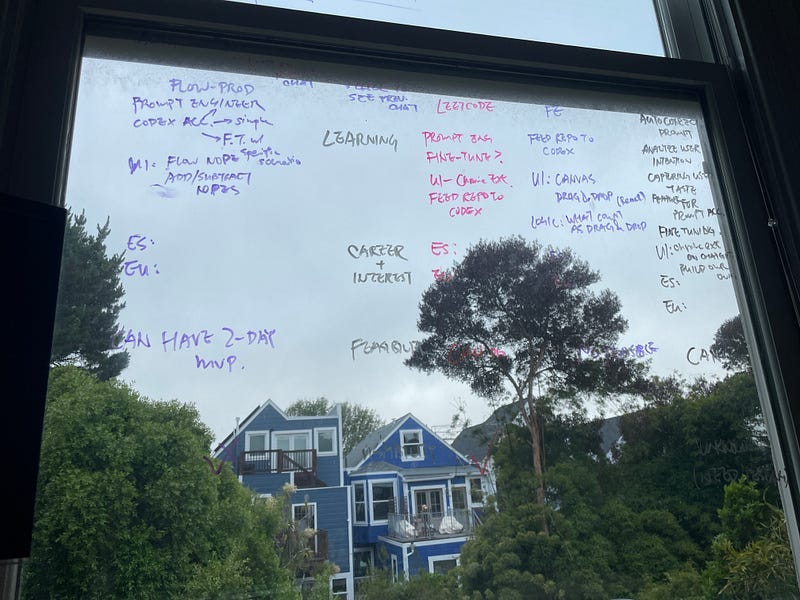 FLOW-PROD
PROMPT ENGINEER
CODEX ACC. → simple
→ F.T. w/ specific scenario
UI: FLOW NODE
ADD/SUBTRACT
NODES
ES:
EU:
CAN HAVE 2-DAY
MVP.
CHAT
SEE PREV.
CHAT
LEARNING
CAREER
+
INTEREST
LEETCODE
PROMPT ENG
FINE-TUNE?
UI - Chrome Ext.
FEED REPO TO
CODEX
ES:
FE
FEED REPO TO
CODEX
UI: CANVAS
DRAG & DROP (React)
LOGIC: WHAT COUNT
AS DRAG & DROP
AUTOCORRECT
PROMPT
ANALYZE USER
INTENTION
CAPTURING USER
TASTE
FOR
PROMPT ACC.
FINE TUNING.
UI: Chrome ext
ON CHATGPT
BUILD OUR
OWN
ES:
EU: